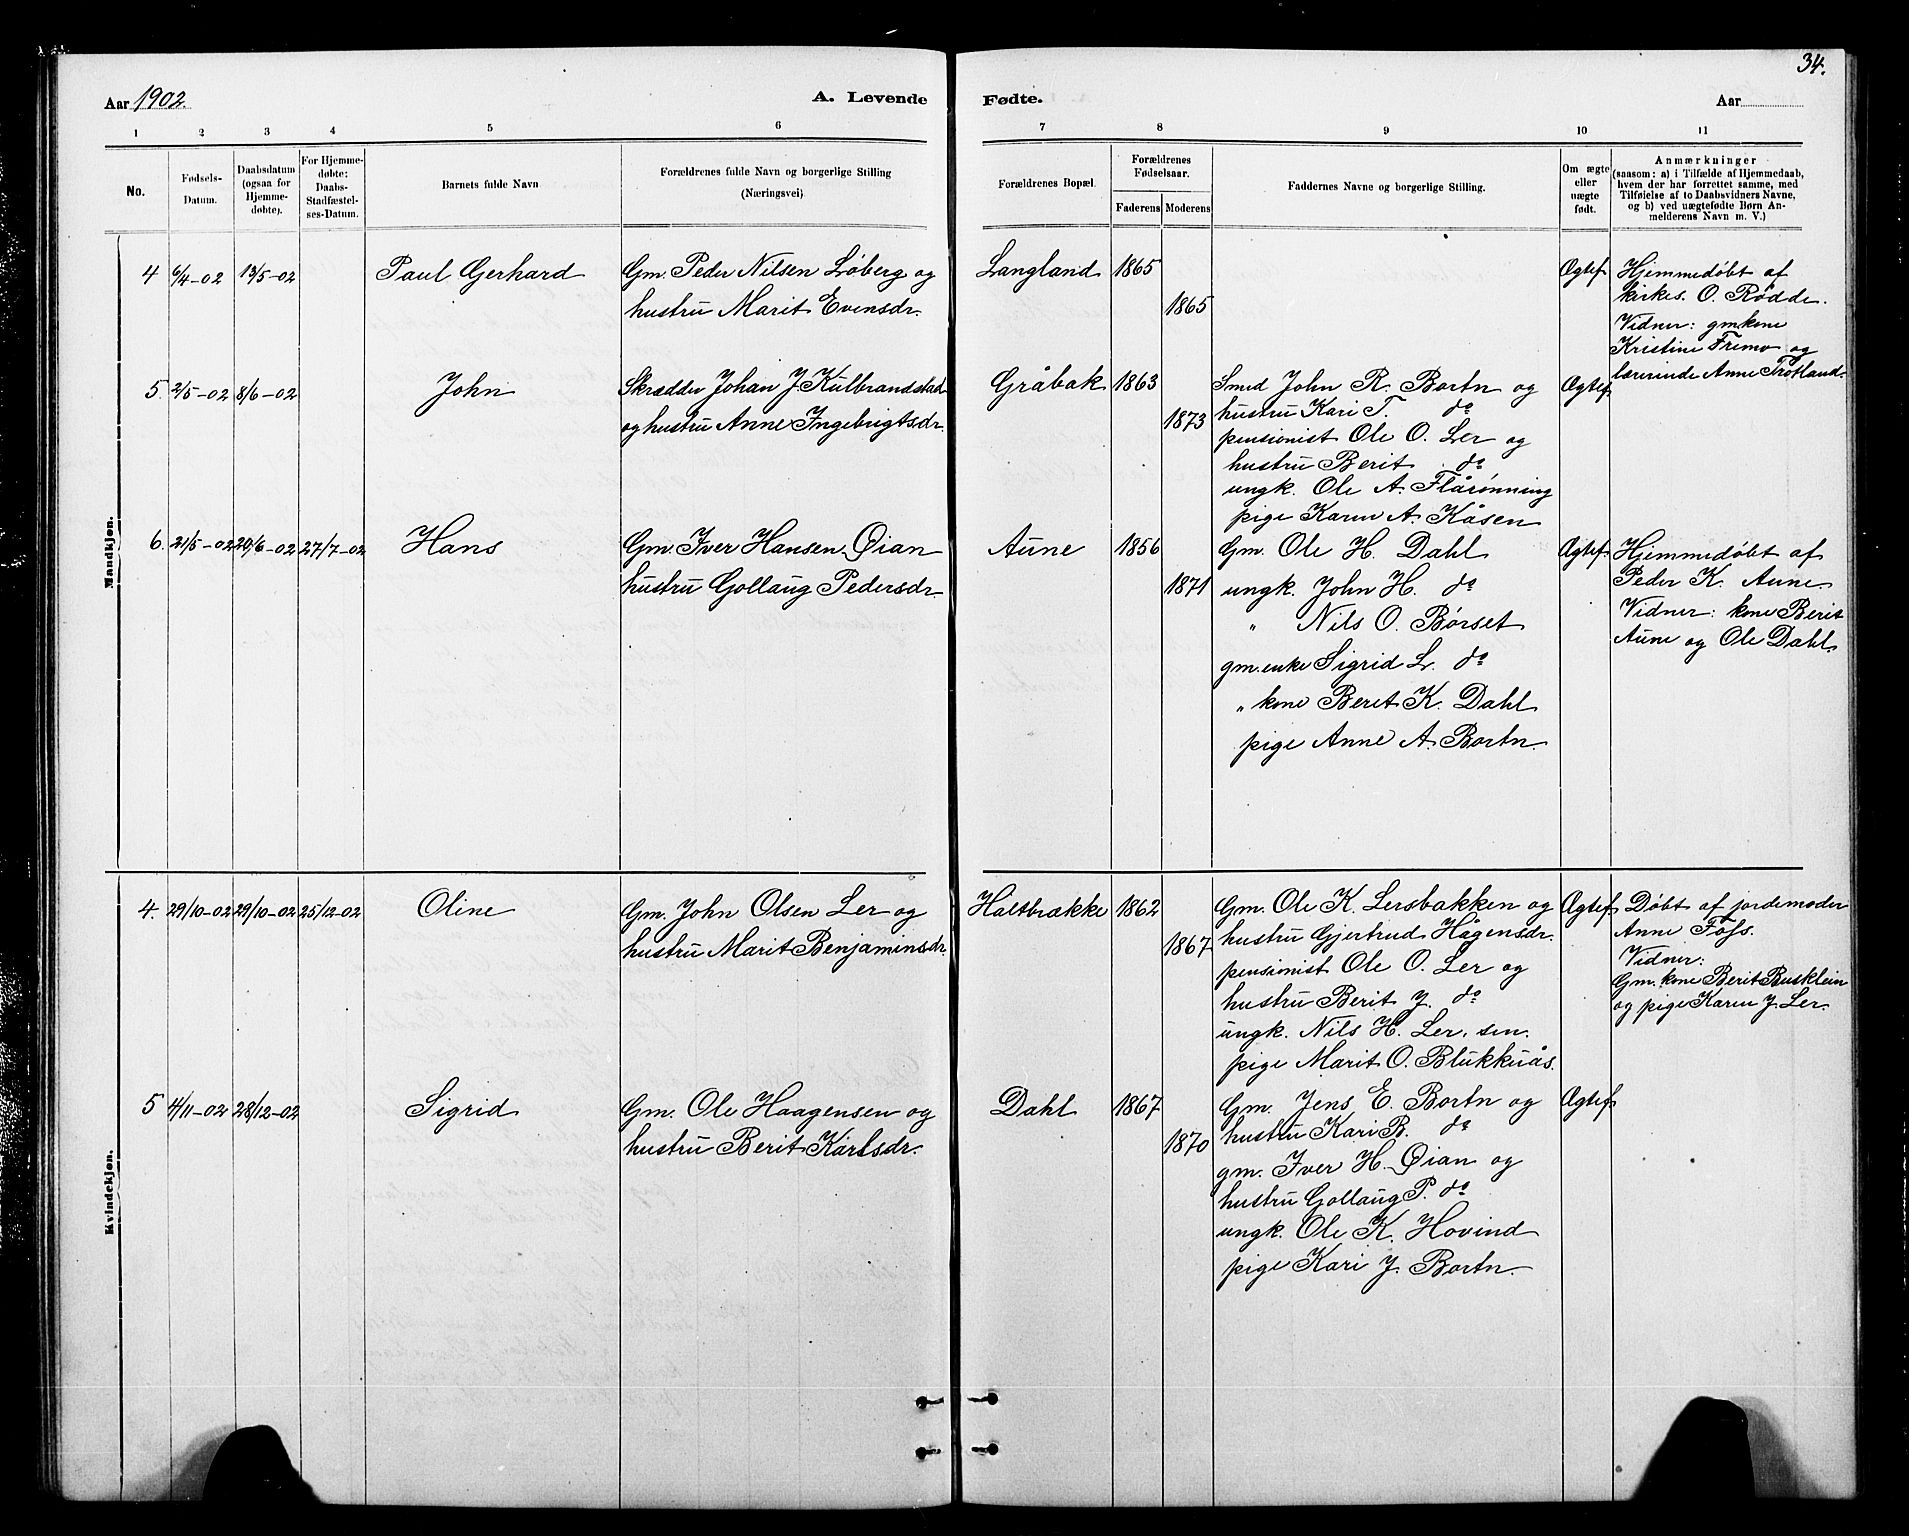 34.
Aar 1902.
A. Levende Fødte.
Aar
1 2 3 4 5 6 7 8 9 10 11
No.
Fødsels-
Datum.
Daabsdatum
(ogsaa for
Hjemme-
døbte).
For Hjemme-
døbte:
Daabs-
Stadfæstel-
ses-Datum.
Barnets fulde Navn
Forældrenes fulde Navn og borgerlige Stilling
(Næringsvei)
Forældrenes Bopæl.
Forældrenes
Fødselsaar.
Faderens Moderens
Faddernes Navne og borgerlige Stilling.
Om ægte
eller
uægte
født.
Anmærkninger
(saasom: a) i Tilfælde af Hjemmedaab,
hvem der har forrettet samme, med
Tilføielse af to Daabsvidners Navne,
og b) ved uægtefødte Børn An-
melderens Navn m. V.)
Mandkjøn.
4 6/4-02 13/5-02 Paul Gerhard
Gm. Peder Nilsen Løberg og
hustru Marit Evensdr.
Langland 1865
1865
Ægtef.
Hjemmedøbt af
kirkes. O. Rødde.
Vidner: gmkone
Kristine Fremo og
lærerinde Anne Trotland.
5. 2/5-02 8/6-02 John
Skrædder Johan J. Kulbrandstad
og hustru Anne Ingebrigtsdr.
Gråbak 1863
1873
Smed John R. Bortn og
hustru Kari T. do
pensionist Ole O. Ler og
hustru Berit do
ungk. Ole A. Flårønning
pige Karen A. Kåsen
Ægtef.
6. 21/5-02 29/6-02 27/7-02 Hans
Gm. Iver Hansen Øian
hustru Gollaug Pedersdr.
Aune 1856
1871
Gm. Ole H. Dahl
ungk. John H. do
" Nils O. Børset
gm.enke Sigrid L. do
" kone Beret K. Dahl
pige Anne A. Bortn.
Ægtef.
Hjemmedøbt af
Peder K. Aune.
Vidner: kone Berit
Aune og Ole Dahl.
Kvindekjøn.
4. 29/10-02 29/10-02 25/12-02 Oline
Gm. John Olsen Ler og
hustru Marit Benjaminsdr.
Håltbrække 1862
1867
Gm. Ole K. Lersbakken og
hustru Gjertrud Hågensdr.
pensionist Ole O. Ler og
hustru Berit J. do
ungk. Nils H. Ler, sen.
pige Marit O. Blukkuås.
Ægtef.
Døbt af jordemoder
Anne Foss.
Vidner:
Gm. kone Berit Busklein
og pige Karen J. Ler.
5 4/11-02 28/12-02 Sigrid
Gm. Ole Haagensen og
hustru Berit Karlsdr.
Dahl 1867
1870
Gm. Jens E. Bortn og
hustru Kari B. do
gm. Iver H. Øian og
hustru Gollaug P. do
ungk. Ole K. Hovind
pige Kari J. Bortn.
Ægtef.